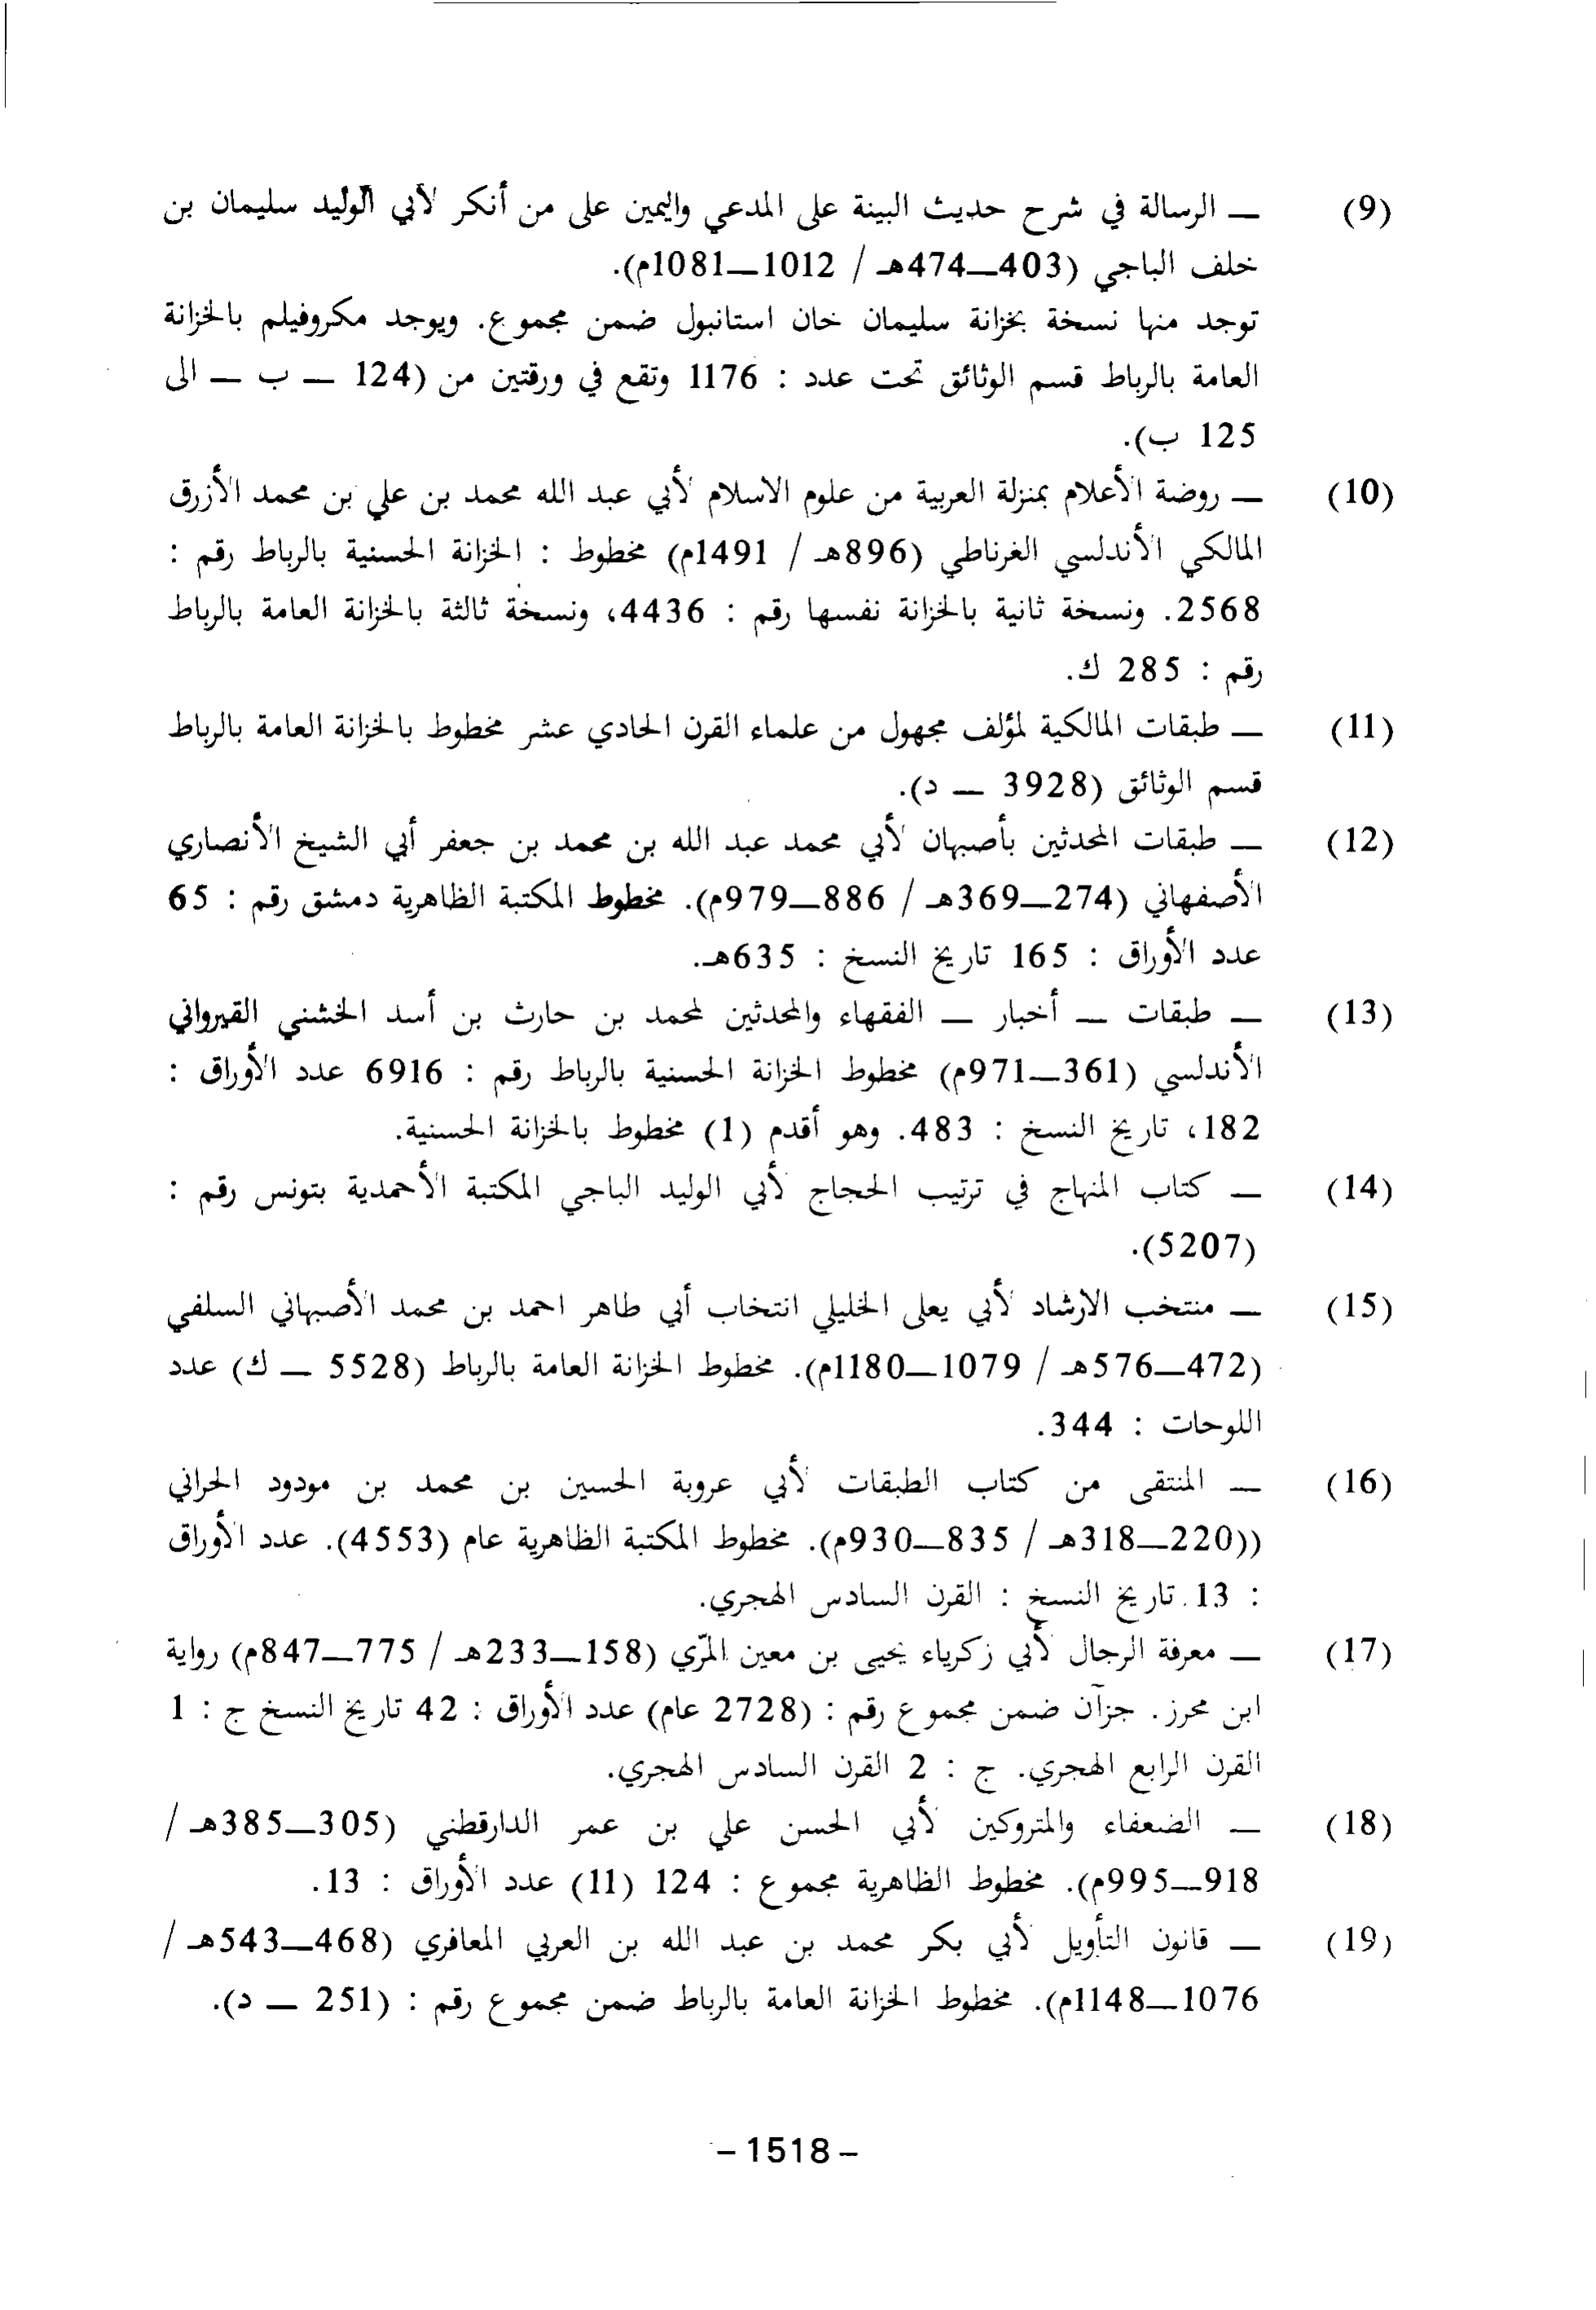 (9) — الرسالة في شرح حديث البينة على المدعي واليمين على من أنكر لأبي الوليد سليمان بن
خلف الباجي (403—474هـ / 1012—1081م).
توجد منها نسخة بخزانة سليمان خان استانبول ضمن مجموع. ويوجد مكروفيلم بالخزانة
العامة بالرباط قسم الوثائق تحت عدد : 1176 وتقع في ورقتين من (124 — ب — الى
125 ب).
(10) — روضة الأعلام بمنزلة العربية من علوم الاسلام لأبي عبد الله محمد بن علي بن محمد الأزرق
المالكي الأندلسي الغرناطي (896هـ / 1491م) مخطوط : الخزانة الحسنية بالرباط رقم :
2568. ونسخة ثانية بالخزانة نفسها رقم : 4436، ونسخة ثالثة بالخزانة العامة بالرباط
رقم : 285 ك.
(11) — طبقات المالكية لمؤلف مجهول من علماء القرن الحادي عشر مخطوط بالخزانة العامة بالرباط
قسم الوثائق (3928 — د).
(12) — طبقات المحدثين بأصبهان لأبي محمد عبد الله بن محمد بن جعفر أبي الشيخ الأنصاري
الأصفهاني (274—369هـ / 886—979م). مخطوط المكتبة الظاهرية دمشق رقم : 65
عدد الأوراق : 165 تاريخ النسخ : 635هـ.
(13) — طبقات — أخبار — الفقهاء والمحدثين لمحمد بن حارث بن أسد الخشني القيرواني
الأندلسي (361—971م) مخطوط الخزانة الحسنية بالرباط رقم : 6916 عدد الأوراق :
182، تاريخ النسخ : 483. وهو أقدم (1) مخطوط بالخزانة الحسنية.
(14) — كتاب المنهاج في ترتيب الحجاج لأبي الوليد الباجي المكتبة الأحمدية بتونس رقم :
(5207).
(15) — منتخب الارشاد لأبي يعلى الخليلي انتخاب أبي طاهر احمد بن محمد الأصبهاني السلفي
(472—576هـ / 1079—1180م). مخطوط الخزانة العامة بالرباط (5528 — ك) عدد
اللوحات : 344.
(16) — المنتقى من كتاب الطبقات لأبي عروبة الحسين بن محمد بن مودود الحراني
((220—318هـ / 835—930م). مخطوط المكتبة الظاهرية عام (4553). عدد الأوراق
: 13. تاريخ النسخ : القرن السادس الهجري.
(17) — معرفة الرجال لأبي زكرياء يحيى بن معين المرّي (158—233هـ / 775—847م) رواية
ابن محرز. جزآن ضمن مجموع رقم : (2728 عام) عدد الأوراق : 42 تاريخ النسخ ج : 1
القرن الرابع الهجري. ج : 2 القرن السادس الهجري.
(18) — الضعفاء والمتروكين لأبي الحسن علي بن عمر الدارقطني (305—385هـ /
918—995م). مخطوط الظاهرية مجموع : 124 (11) عدد الأوراق : 13.
(19) — قانون التأويل لأبي بكر محمد بن عبد الله بن العربي المعافري (468—543هـ /
1076—1148م). مخطوط الخزانة العامة بالرباط ضمن مجموع رقم : (251 — د).
– 1518 –